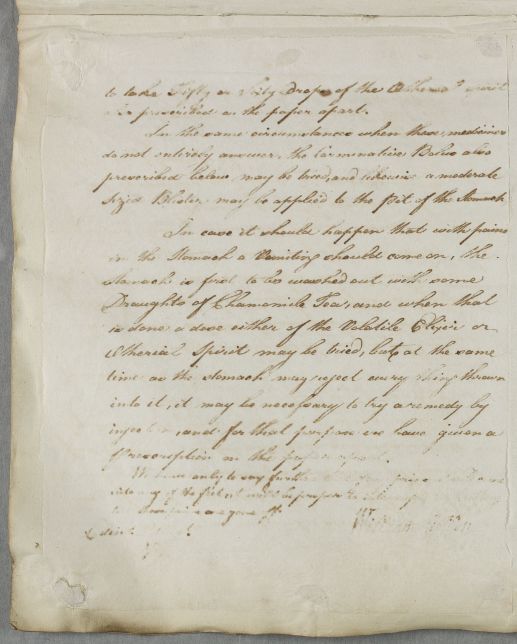 to take Fifty or Sixty Drops of the Etherial spirit
prescribed on the paper apart.
In the same circumstances when these medicines
do not entirely answer, the Carminative Bolus also
prescribed below, may be tried, and likewise a moderate
sized Blister may be applied to the Pit of the Stomach
In case it should happen that with pains
in the Stomach a Vomiting should come on, the
Stomach is first to be washed out with some
Draughts of Chamomile Tea, and when that
is done a dose either of the Volatile Elixir or
Etherial Spirit may be tried, but at the same
time as the stomach may reject every thing thrown
into it, it may be necessary to try a remedy by
injection, and for that purpose we have given a
Prescription on the paper apart.
We have only to say further
of the first it will be proper to
are gone off.
William